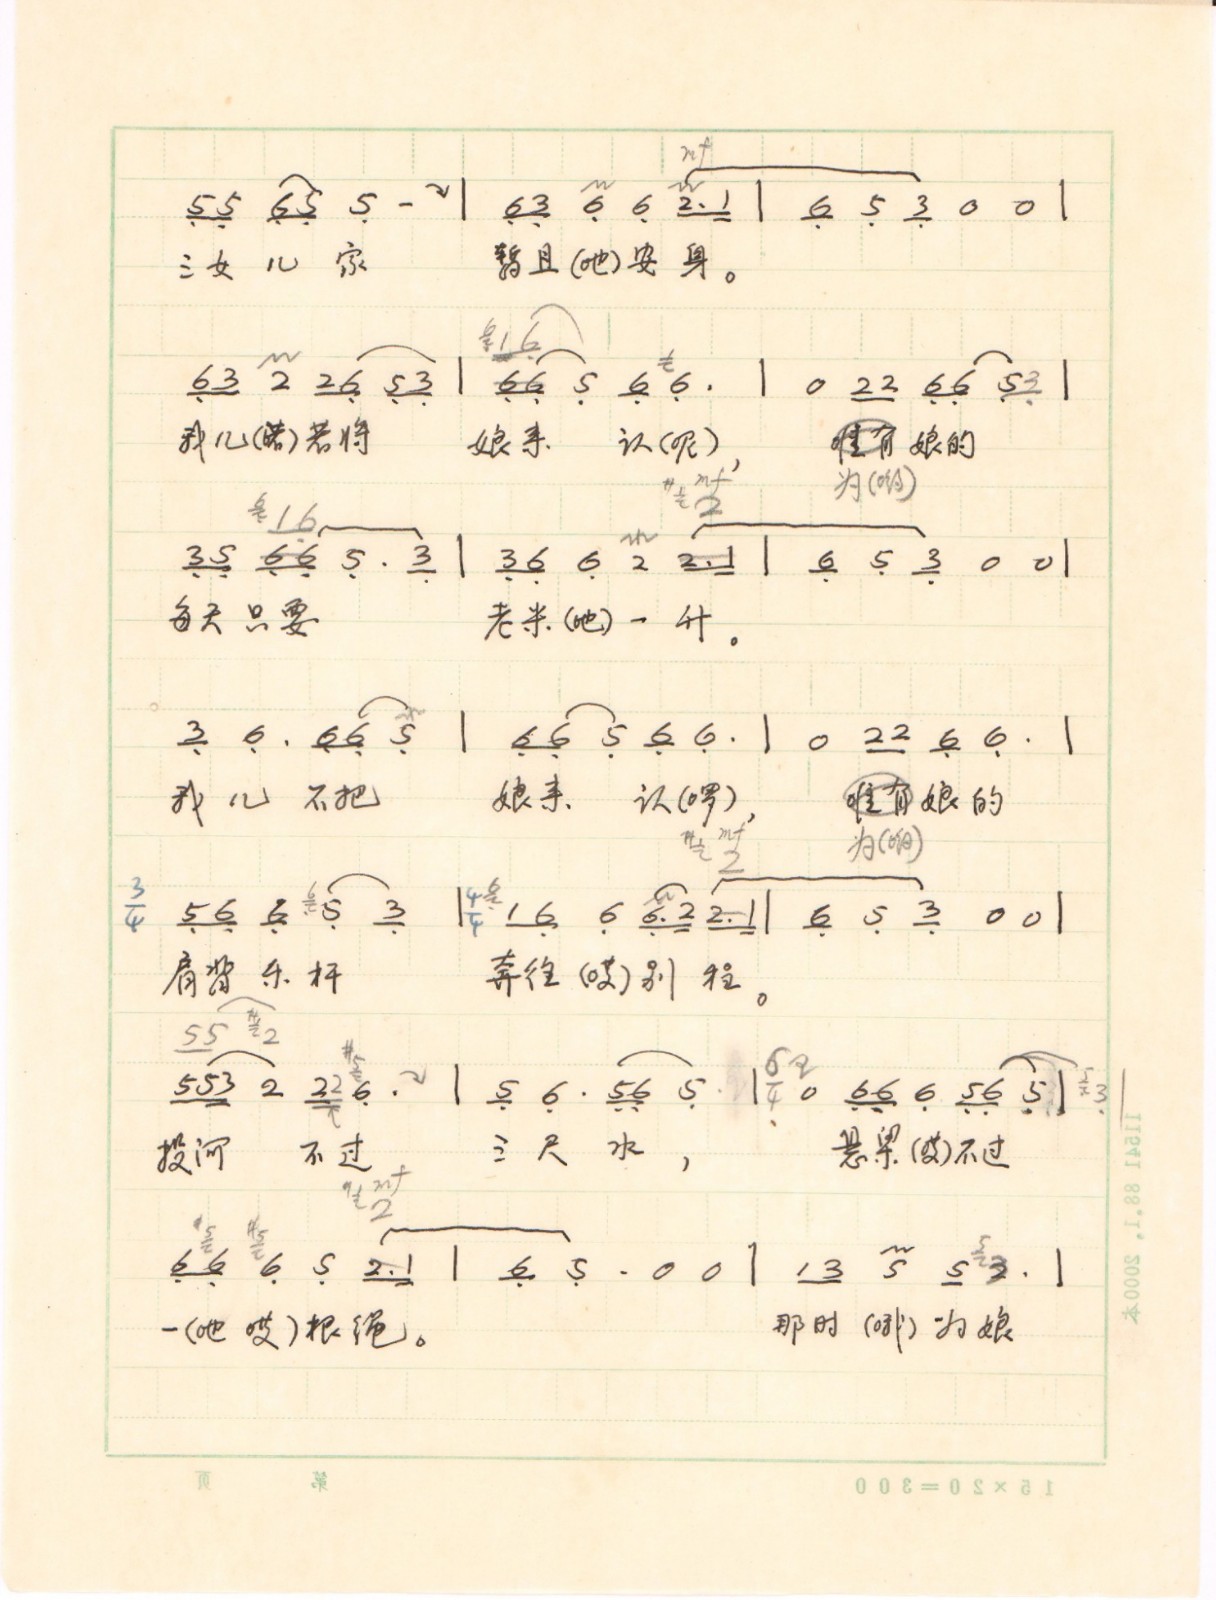 mf
55 65 5 - | 63 6 6 2.1 | 6 5 3 0 0 |
三女儿 家 暂且(吔)安身。
16
63 2 26 53 | 66 5 6 6. | 0 22 66 53 |
我儿(喏)若将 娘来 认(呢), 唯有娘的
为(哟)
16 mf 2
35 66 5. 3 | 36 6 2 2.1 | 6 5 3 0 0 |
每天只要 老米(吔)一升。
3 6. 66 5 | 66 5 66. | 0 22 66. |
我儿 不把 娘来 认(啰), 唯有娘的
mf 2 为(哟)
3/4 56 6 5 3 | 4/4 16 6 6.2 2.1 | 6 5 3 0 0 |
肩背 乐杆 奔往(哎)别程。
55 2
553 2 22 6. | 5 6. 56 5. | 6/4 0 66 6 56 5 | 3
投河 不过 三尺水, 悬梁(哎)不过
mf 2
66 6 5 2.1 | 6 5 - 0 0 | 13 5 5 3. |
一(吔 哎)根绳。 那时(哦)为娘
11541 88.1. 2000本
15×20=300 第 页